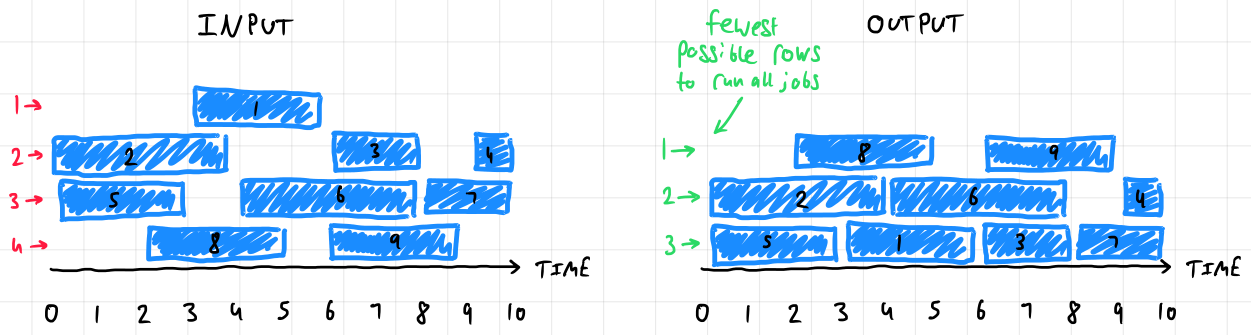 INPUT
1
2
3
4
1
2
3
4
5
6
7
8
9
TIME
0 1 2 3 4 5 6 7 8 9 10
fewest
possible rows
to run all jobs
OUTPUT
1
2
3
8
9
2
6
4
5
1
3
7
TIME
0 1 2 3 4 5 6 7 8 9 10